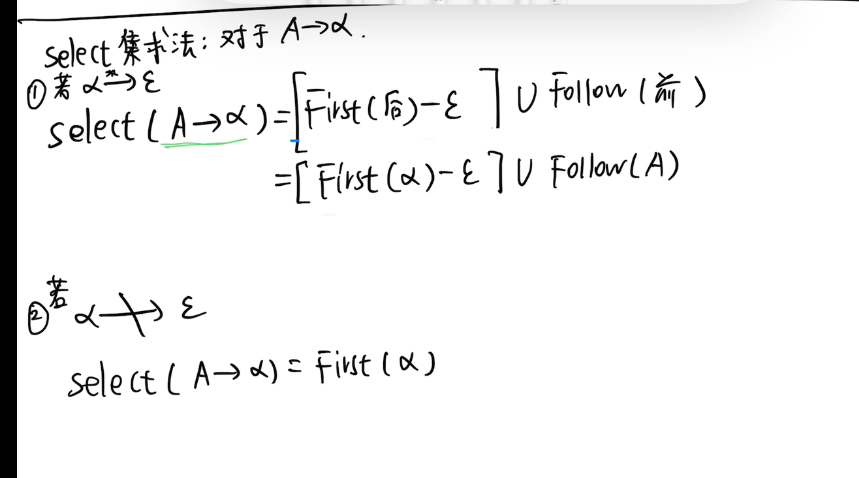 select集求法：对于 A→α.
①若 α*→ε
select(A→α)=[First(后)-ε]∪Follow(前)
=[First(α)-ε]∪Follow(A)
②若 α↛ε
select(A→α)=First(α)